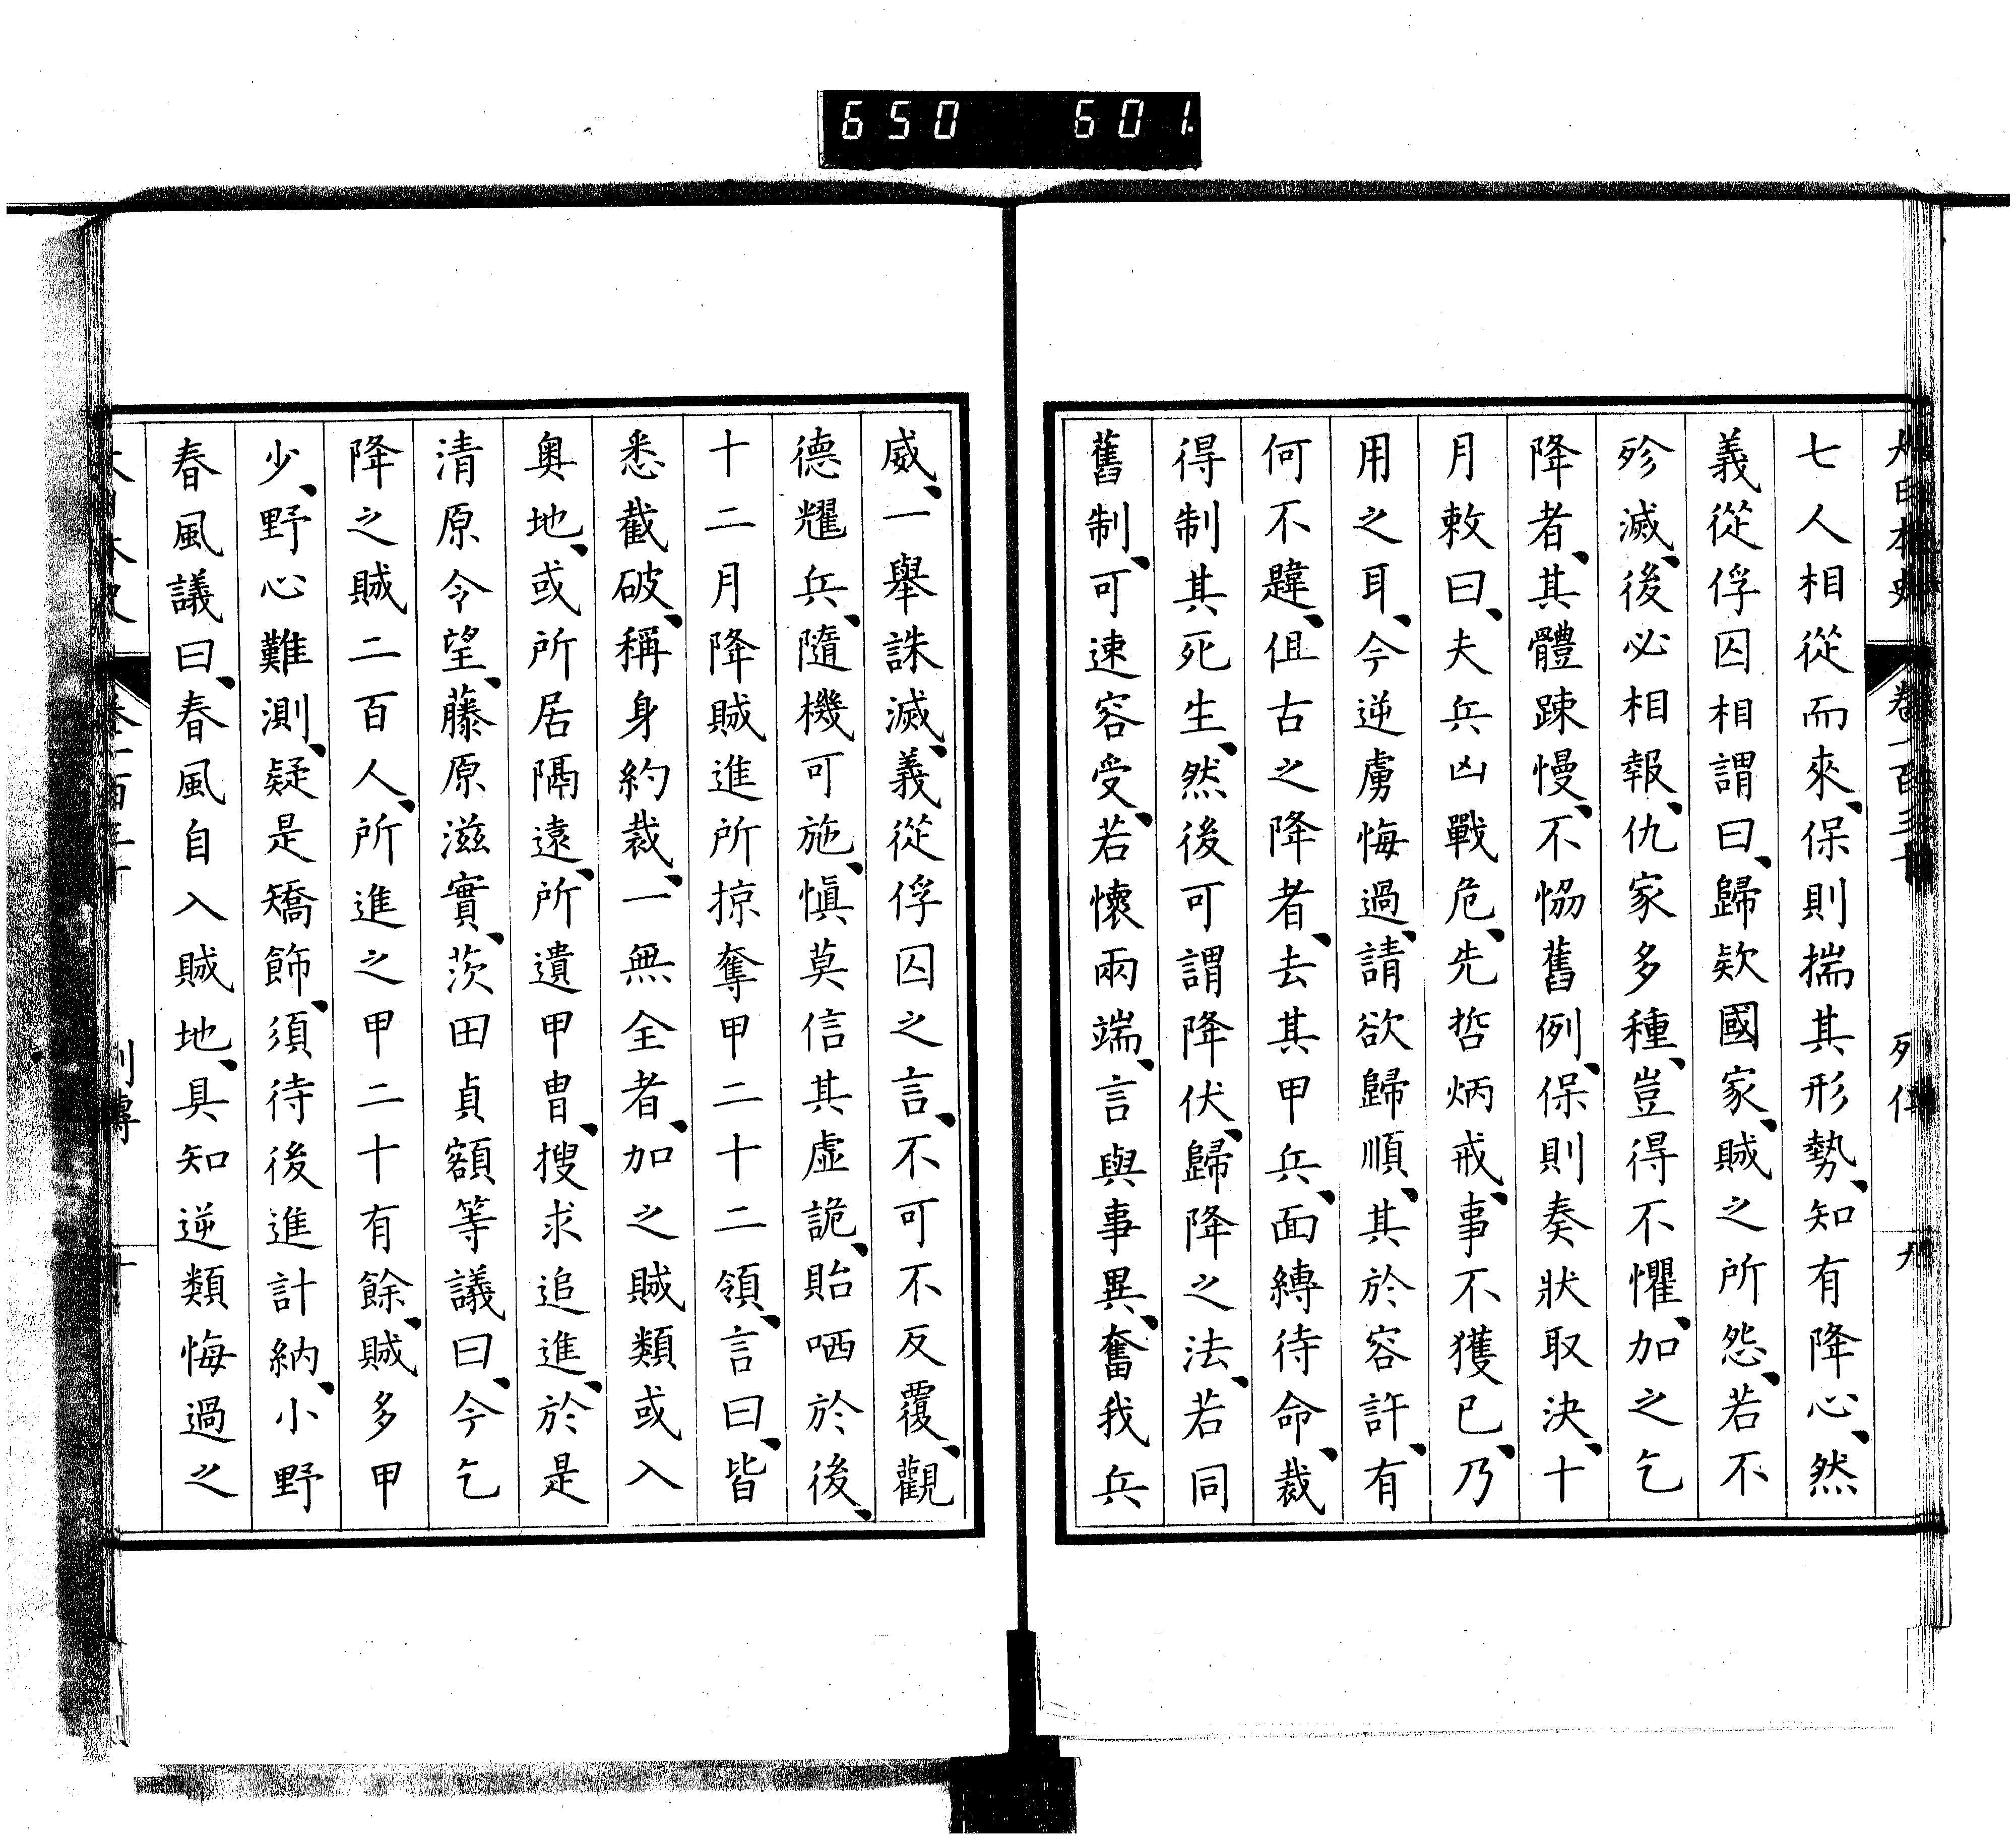 650 601.
七人相從而來、保則揣其形勢、知有降心、然
義從俘囚相謂曰、歸欵國家、賊之所怨、若不
殄滅、後必相報、仇家多種、豈得不懼、加之乞
降者、其體踈慢、不恊舊例、保則奏狀取決、十
月敕曰、夫兵凶戰危、先哲炳戒、事不獲已、乃
用之耳、今逆虜悔過、請欲歸順、其於容許、有
何不韙、但古之降者、去其甲兵、面縛待命、裁
得制其死生、然後可謂降伏、歸降之法、若同
舊制、可速容受、若懷兩端、言與事異、奮我兵
威、一舉誅滅、義從俘囚之言、不可不反覆、觀
德耀兵、隨機可施、愼莫信其虛詭、貽哂於後、
十二月降賊進所掠奪甲二十二領、言曰、皆
悉截破、稱身約裁、一無全者、加之賊類或入
奥地、或所居隔遠、所遺甲冑、搜求追進、於是
清原令望、藤原滋實、茨田貞額等議曰、今乞
降之賊二百人、所進之甲二十有餘、賊多甲
少、野心難測、疑是矯飾、須待後進計納、小野
春風議曰、春風自入賊地、具知逆類悔過之